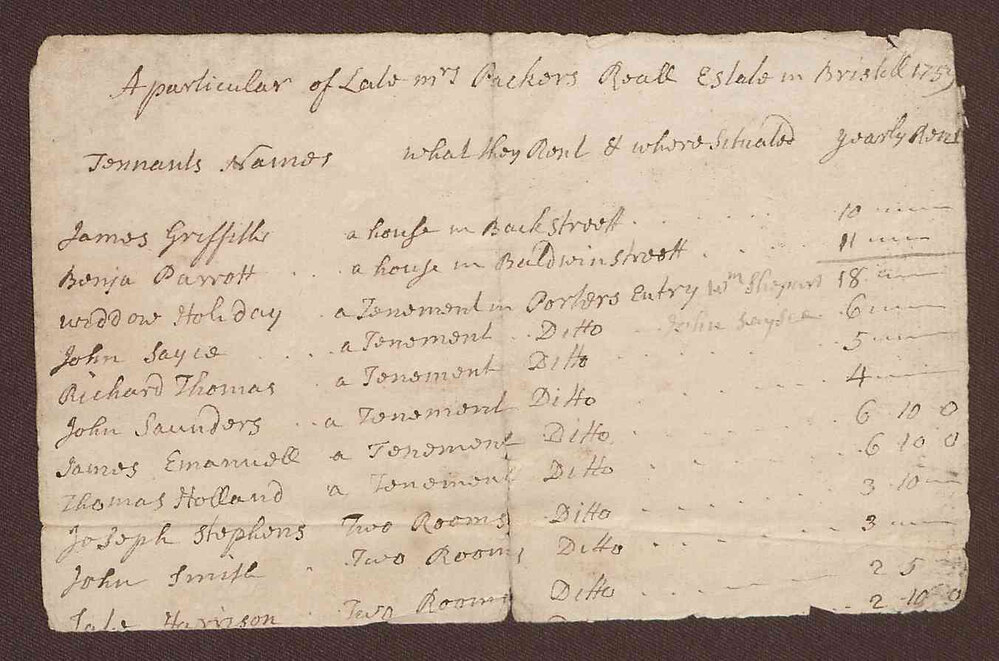 A particular of Late mrs Packers Reall Estate in Bristoll 1759
Tennants Names what they Rent & where Situated yearly Rent
James Griffiths a house in Backstreett 10
Benja Parrott a house in Baldwinstreett 11
widdow Holiday a Tenement in Porters Entry Wm 18
John Sayce a Tenement Ditto John Sayce 6
Richard Thomas a Tenement Ditto 5
John Saunders a Tenement Ditto 4
James Emanuell a Tenement Ditto 6 10 0
Thomas Holland a Tenement Ditto 6 10 0
Joseph Stephens Two Rooms Ditto 3 10
John Smith Two Rooms Ditto 3
Late Harrison Two Rooms Ditto 2 5
2 10 0